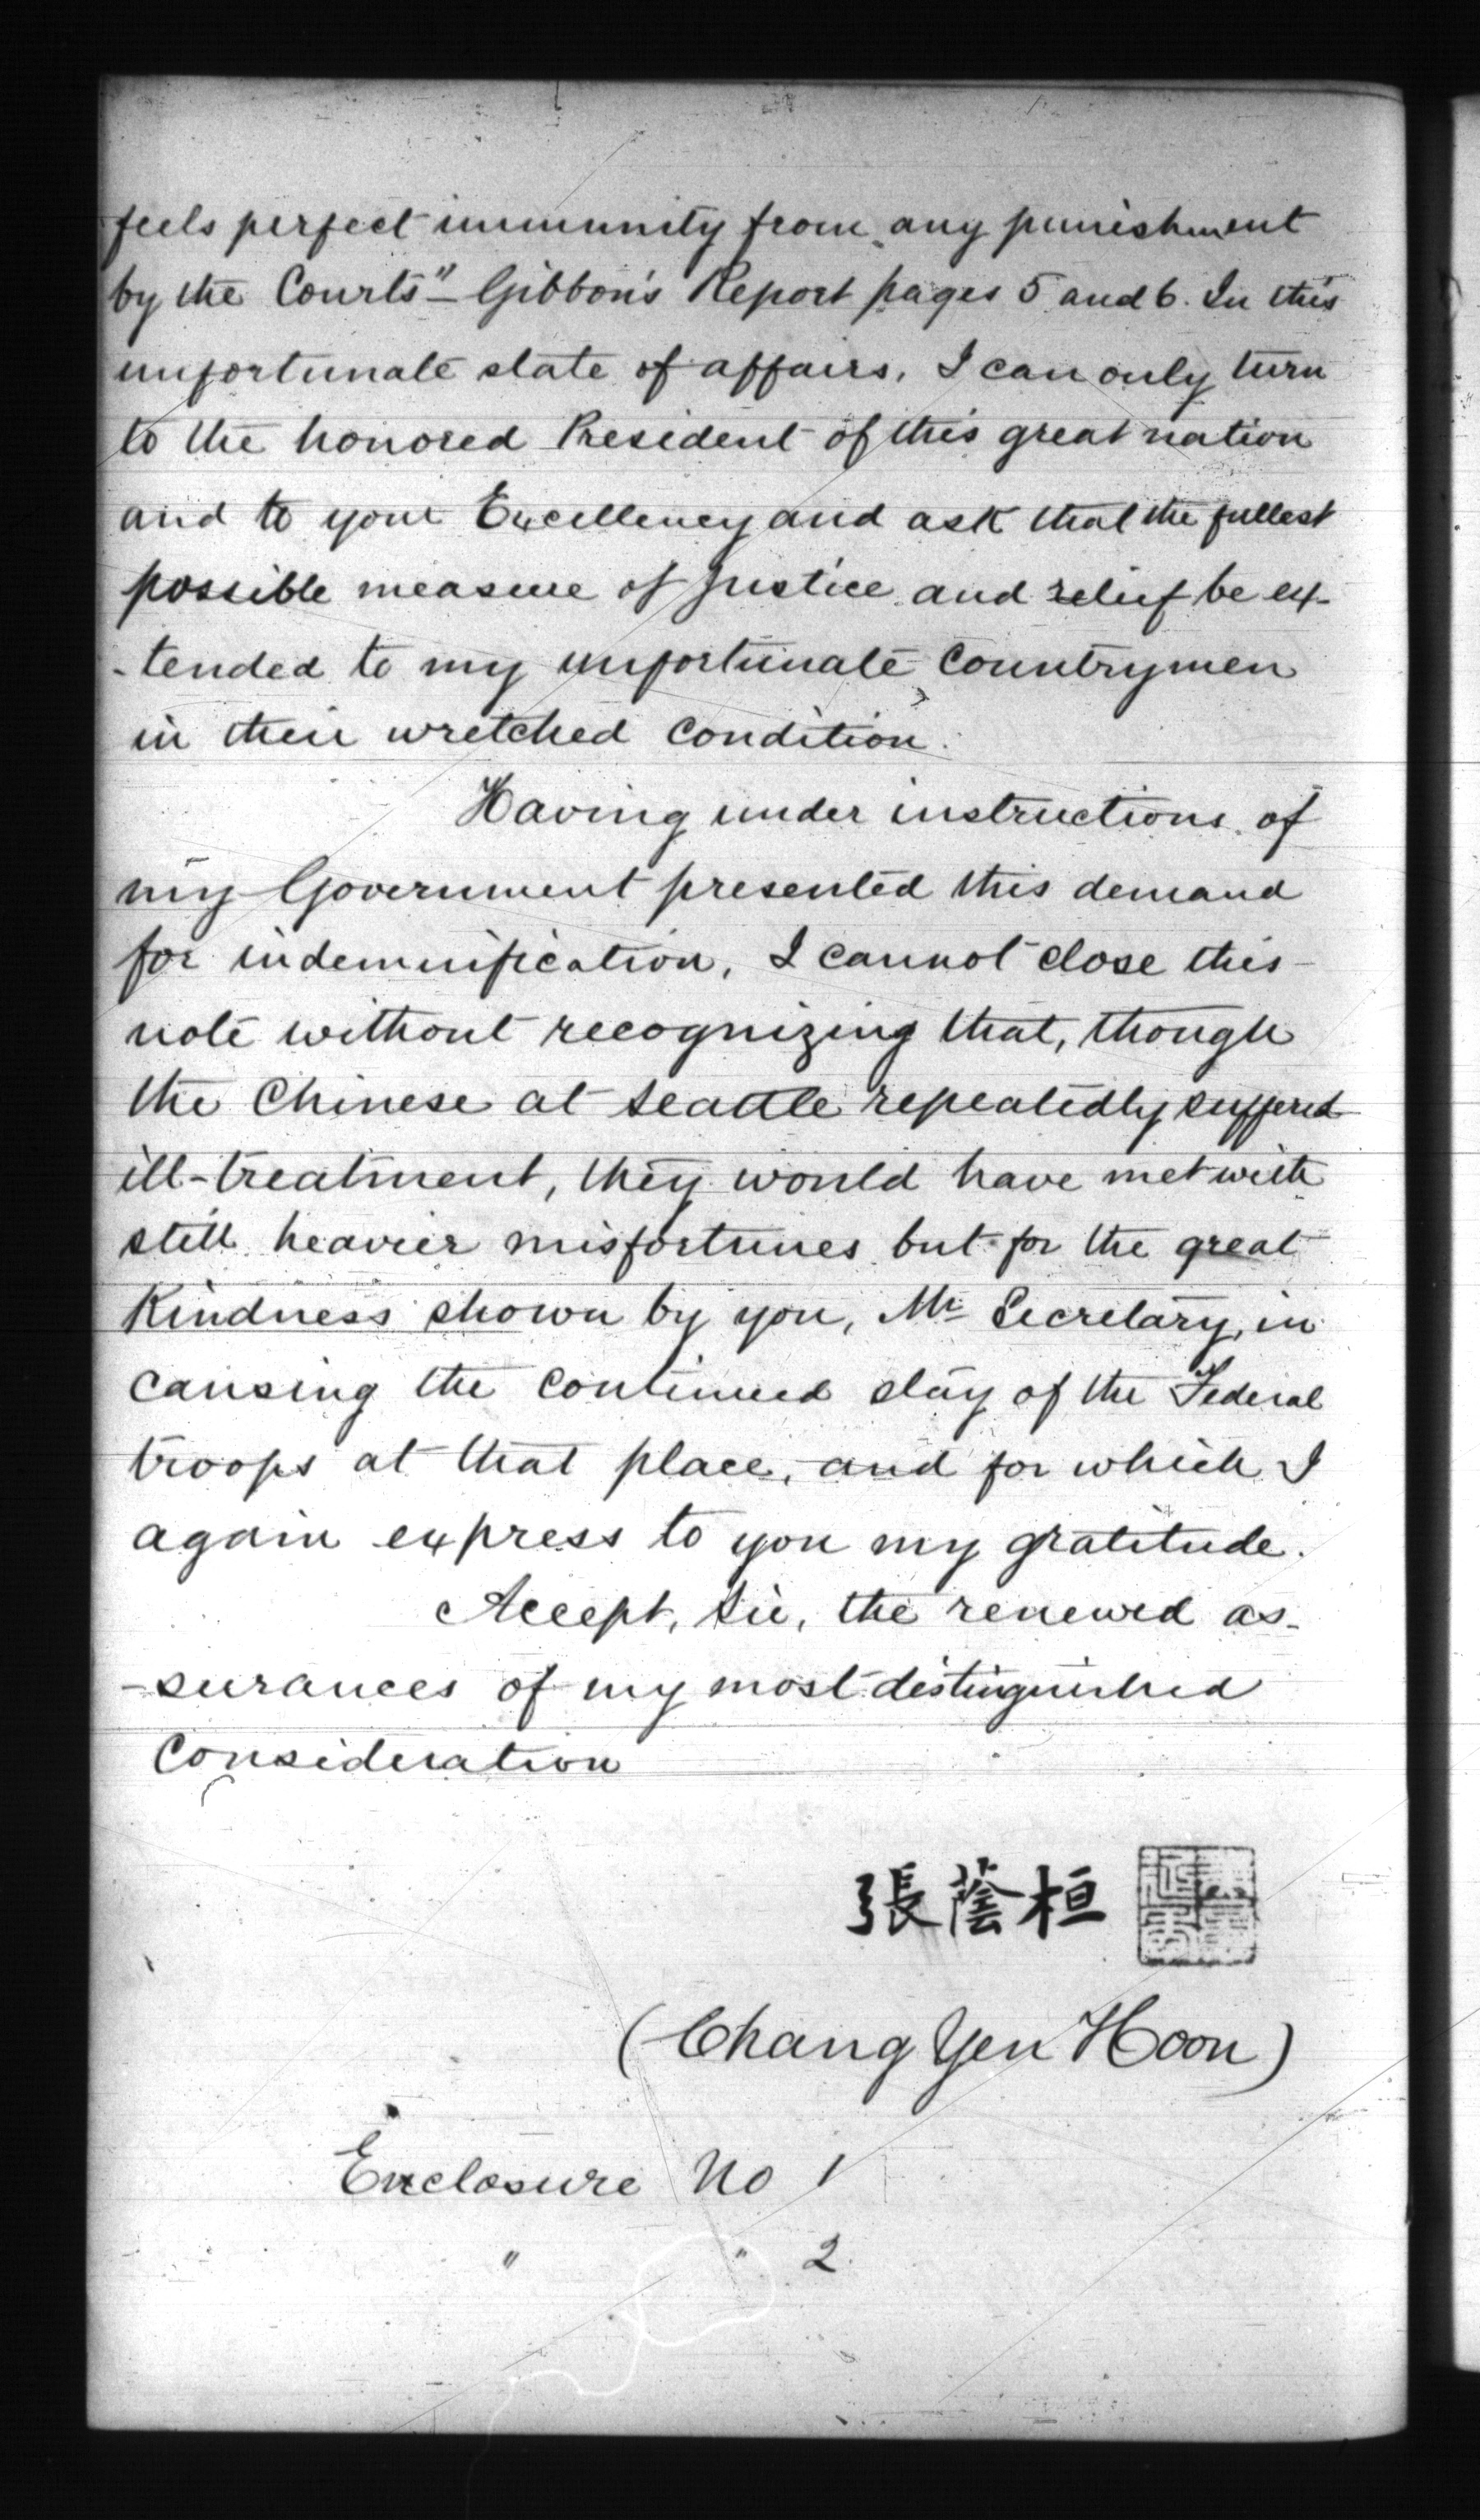 feels perfect immunity from any punishment
by the Courts" - Gibbon's Report pages 5 and 6. In this
unfortunate state of affairs, I can only turn
to the honored President of this great nation
and to your Excellency and ask that the fullest
possible measure of justice and relief be ex-
-tended to my unfortunate Countrymen
in their wretched condition.
Having under instructions of
my Government presented this demand
for indemnification, I cannot close this
note without recognizing that, though
the Chinese at Seattle repeatedly suffered
ill-treatment, they would have met with
still heavier misfortunes but for the great
Kindness shown by you, Mr Secretary, in
causing the continued stay of the Federal
troops at that place, and for which I
again express to you my gratitude.
Accept, Sir, the renewed as-
-surances of my most distinguished
Consideration
張蔭桓
(Chang Yen Hoon)
Enclosure No 1
" " 2.